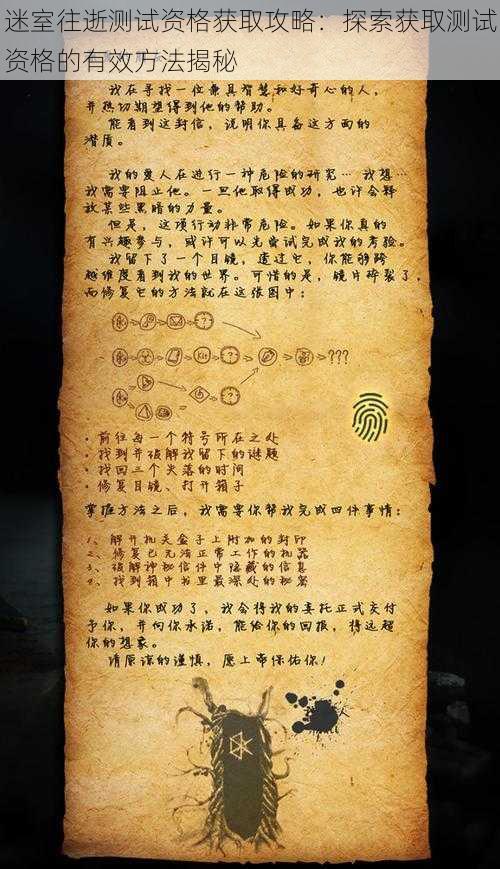 迷室往逝测试资格获取攻略：探索获取测试
资格的有效方法揭秘
我在寻找一位兼具智慧和好奇心的人，
并热切期望得到他的帮助。
能看到这封信，说明你具备这方面的
潜质。
我的爱人在进行一种危险的研究… 我想…
我需要阻止他。一旦他取得成功，也许会释
放某些黑暗的力量。
但是，这项行动非常危险。如果你真的
有兴趣参与，或许可以先尝试完成我的考验。
我留下了一个目镜，透过它，你能够跨
越维度看到我的世界。可惜的是，镜片碎裂了，
而修复它的方法就在这张图中：
?
Kit ? ???
?
· 前往每一个符号所在之处
· 找到并破解我留下的谜题
· 找回三个失落的时间
· 修复目镜、打开箱子
掌握方法之后，我需要你帮我完成四件事情：
1、解开机关盒子上附加的封印
2、修复已无法正常工作的机器
3、破解神秘信件中隐藏的信息
4、找到箱中书里最深处的秘密
如果你成功了，我会将我的委托正式交付
予你，并向你承诺，能给你的回报，将远超
你的想象。
请原谅的谨慎，愿上帝保佑你！